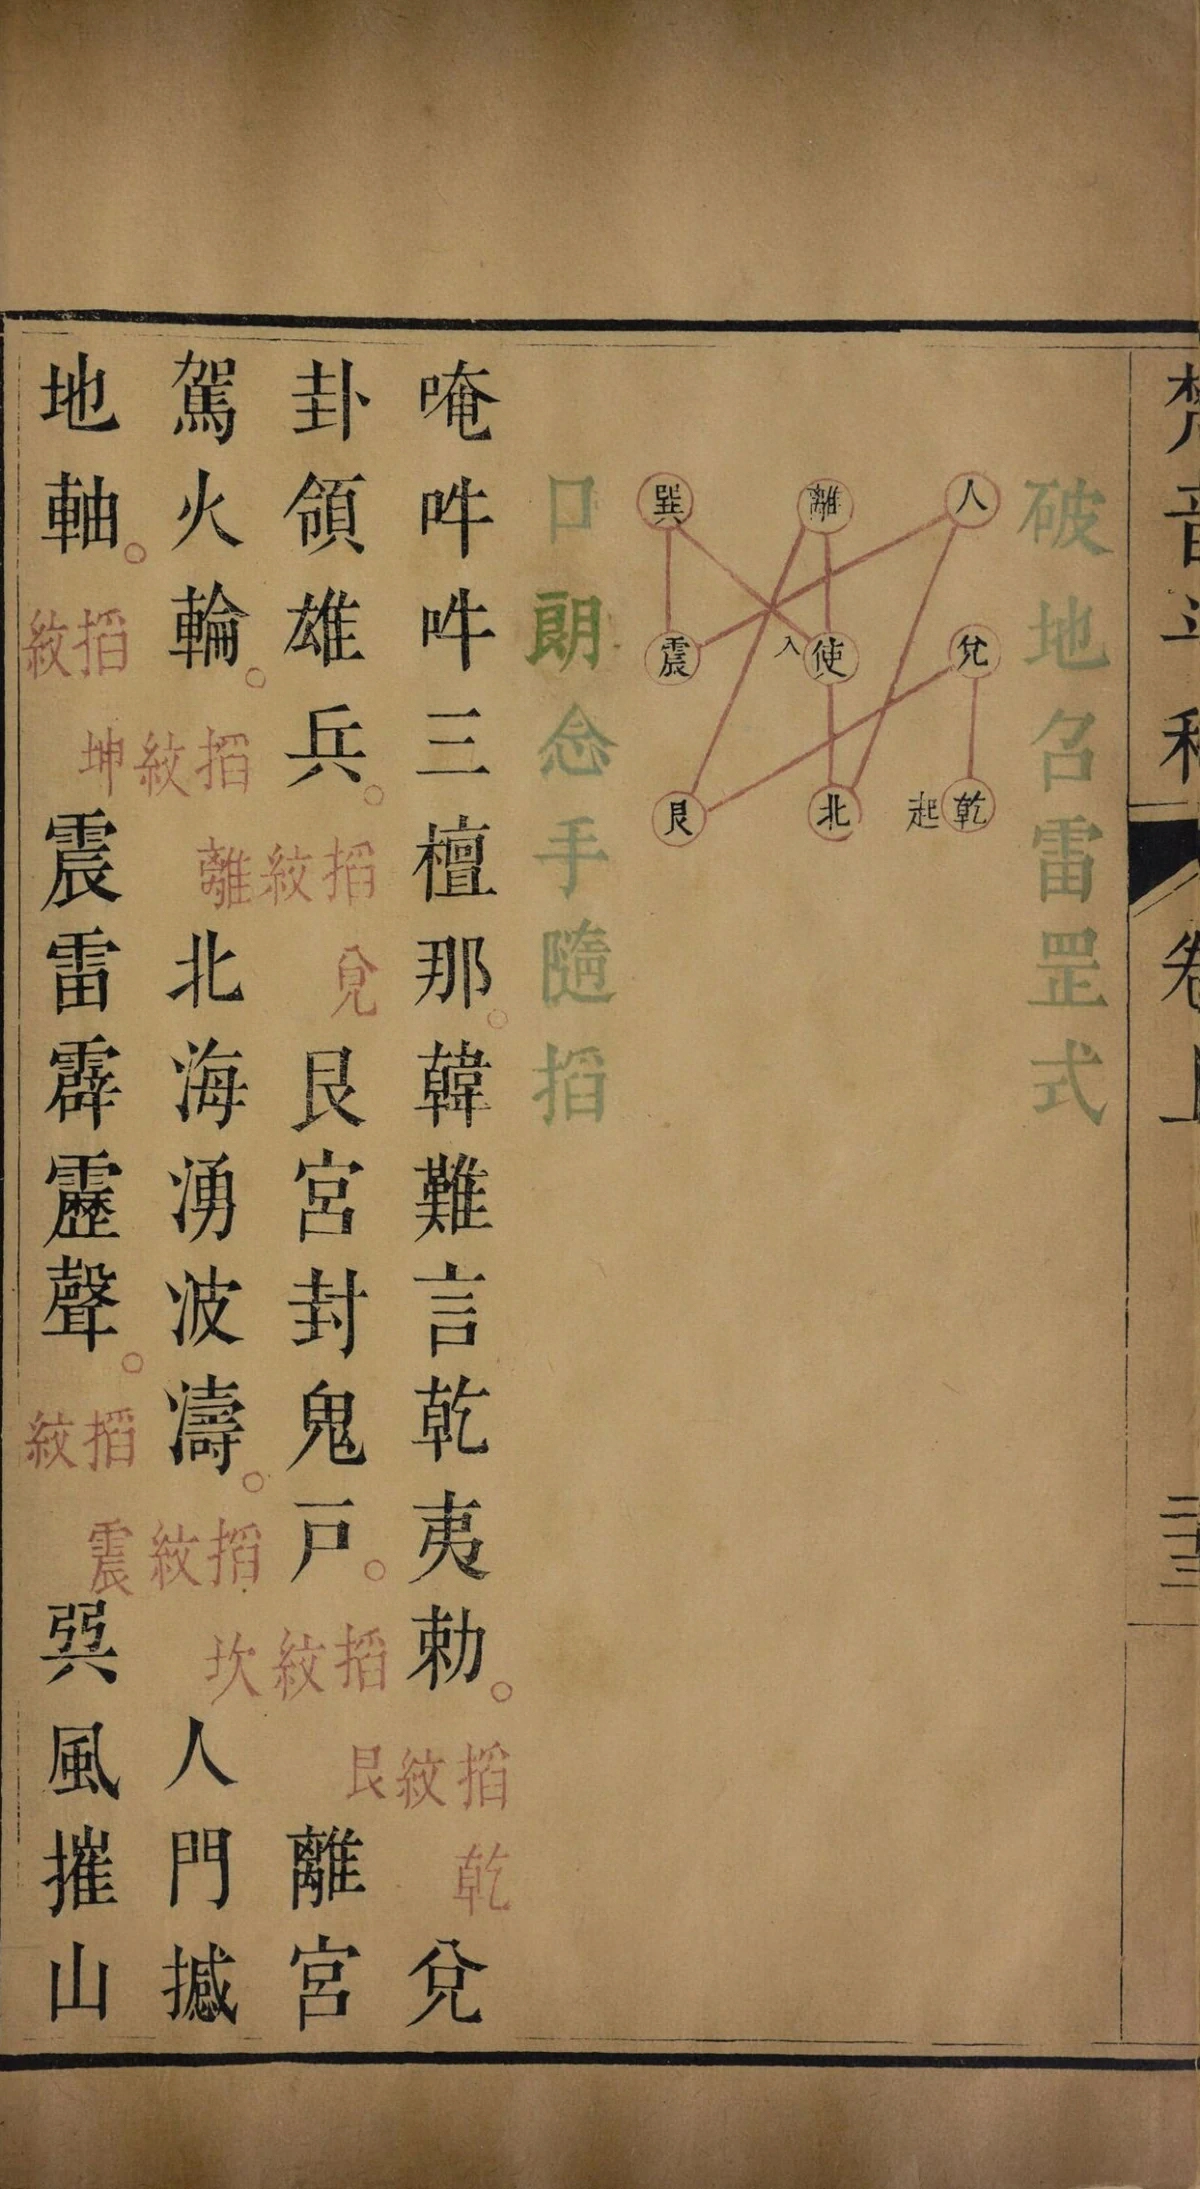 梵音斗科 卷上 二十三
破地召雷罡式
人 離 巽
兌 使 入 震
乾 起 北 艮
口朗念手隨搯
唵吽吽三檀那韓難言乾夷勅。搯乾紋兌
卦領雄兵。搯兌紋艮宮封鬼戶。搯艮紋離宮
駕火輪。搯離紋北海湧波濤。搯坎紋人門撼
地軸。搯坤紋震雷霹靂聲。搯震紋巽風摧山